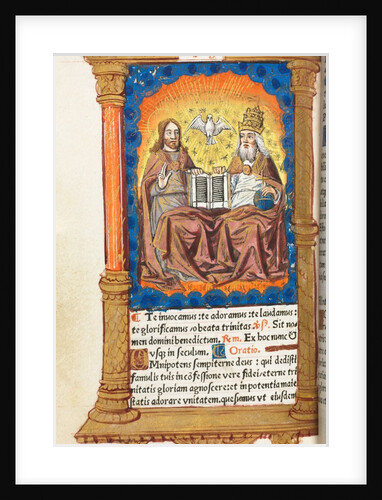 ¶ Te inuocamus: te adoramus: te laudamus:
te glorificamus / o beata trinitas. ℣. Sit no
men domini benedictum. ℞m. Ex hoc nunc
usqʒ in seculum. Oratio.
OMnipotens sempiterne deus: qui dedisti
famulis tuis in cõfessione vere fidei: eterne tri
nitatis gloriam agnoscere: et in potentia maie
statis adorare vnitatem. quesumus vt eiusdem